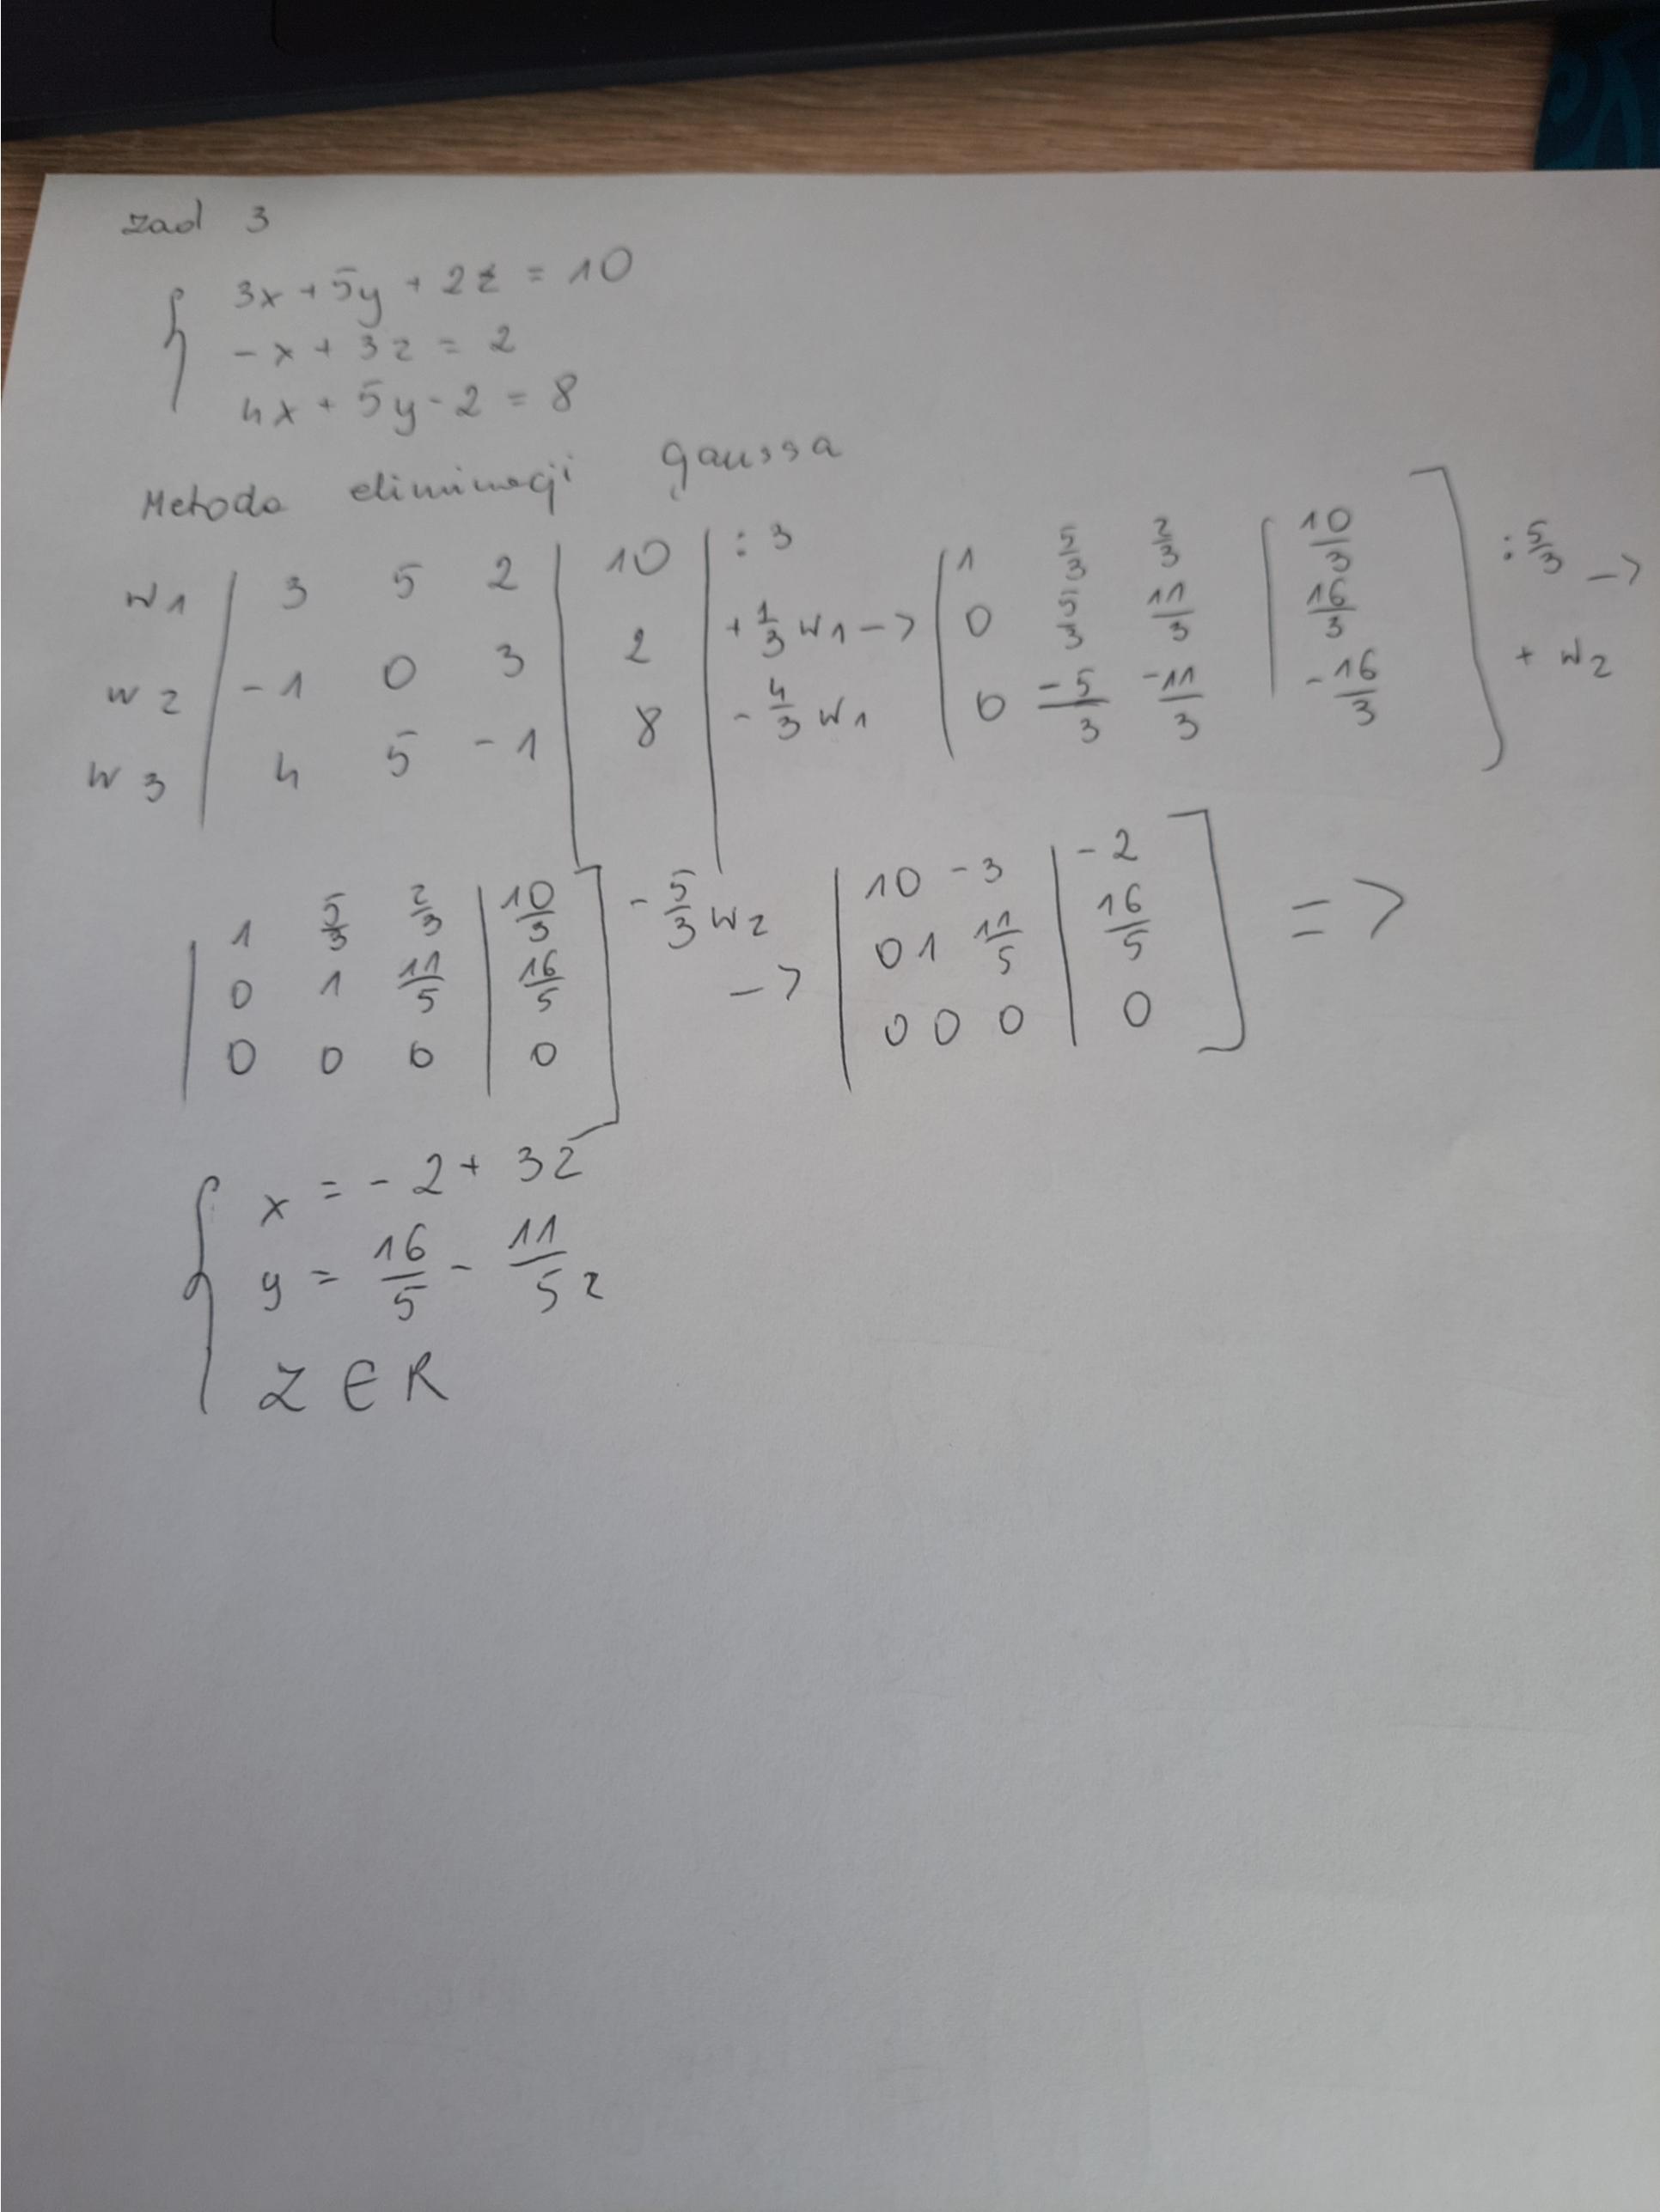 zad 3
3x + 5y + 2z = 10
- x + 3z = 2
4x + 5y - z = 8
Metoda eliminacji gaussa
w1 | 3 5 2 | 10 | : 3
w2 | -1 0 3 | 2 | + 1/3 w1 ->
w3 | 4 5 -1 | 8 | - 4/3 w1
| 1 5/3 2/3 | 10/3 ]
| 0 5/3 11/3 | 16/3 ] : 5/3 ->
| 0 -5/3 -11/3 | -16/3 ] + w2
| 1 5/3 2/3 | 10/3 ] - 5/3 w2
| 0 1 11/5 | 16/5 ] ->
| 0 0 0 | 0 ]
| 1 0 -3 | -2 ]
| 0 1 11/5 | 16/5 ] =>
| 0 0 0 | 0 ]
x = - 2 + 3z
y = 16/5 - 11/5 z
Z ∈ R